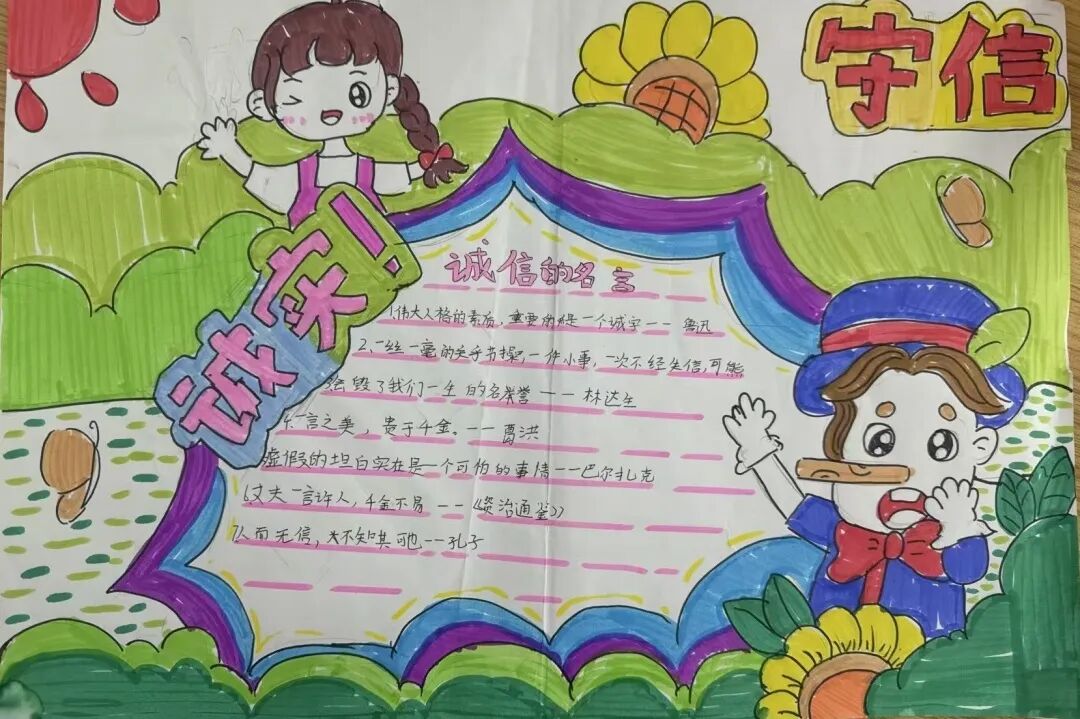 守信
诚实!
诚信的名言
1.伟大人格的素质，重要的是一个诚字——鲁迅
2、一丝一毫的关乎节操，一件小事，一次不经失信，可能
会毁了我们一生的名誉——林达生
4.一言之美，贵于千金。——葛洪
虚假的坦白实在是一个可怕的事情——巴尔扎克
6丈夫一言许人，千金不易——《资治通鉴》
7人而无信，不知其可也--孔子